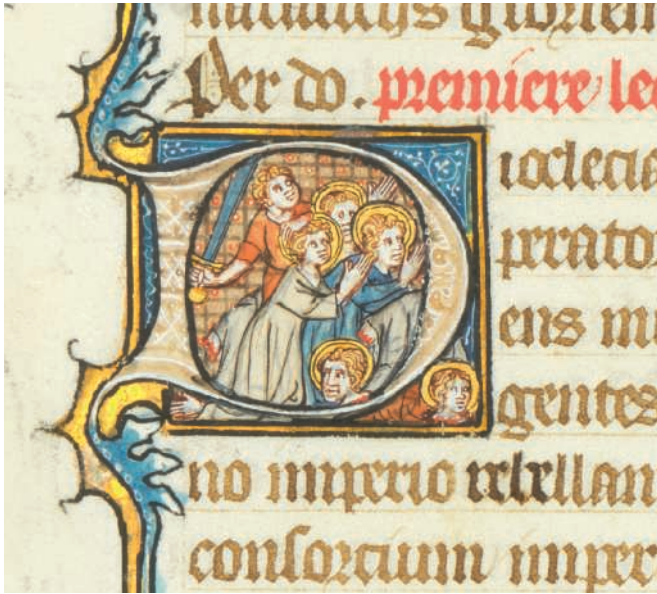 gloriem
Per do. premiere lec
Dioclecia
perato
ens mu
gentes
no imperio rebellan
consorcium imper